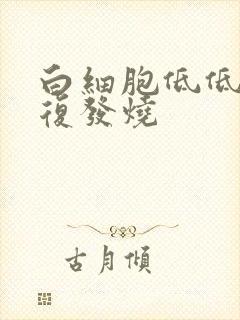 白細胞低低
復發燒
古月傾